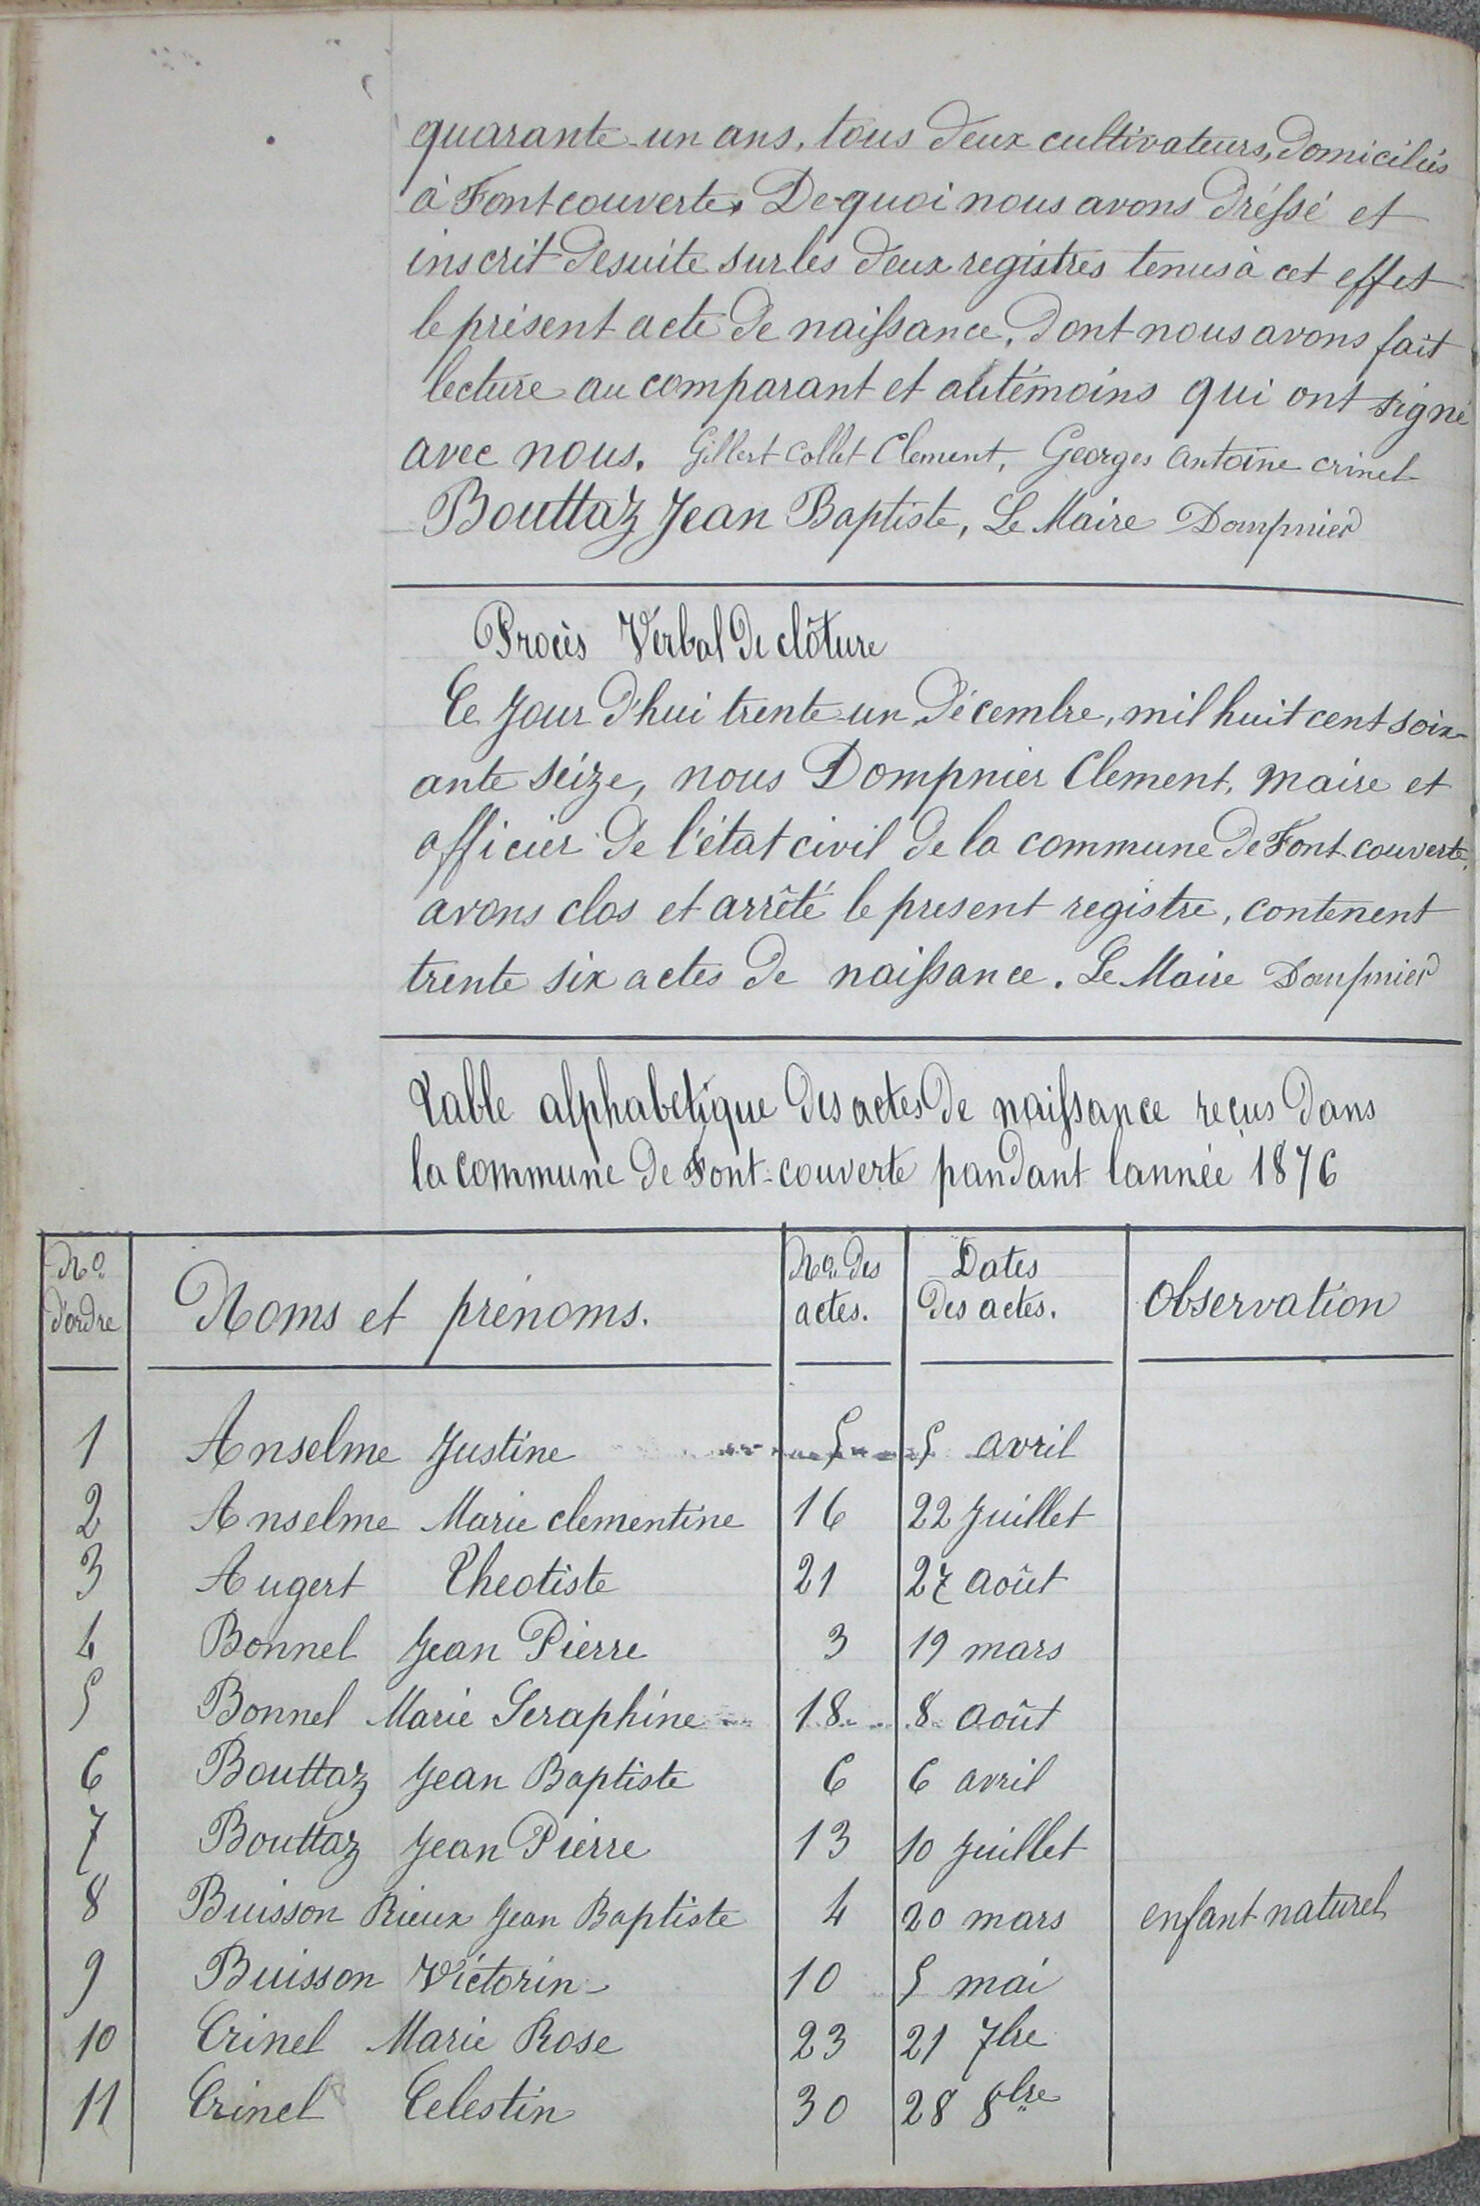 quarante-un ans, tous deux cultivateurs, domiciliés
à Fontcouverte. De quoi nous avons dréssé et
inscrit desuite sur les deux registres tenus à cet effet
le présent acte de naissance, dont nous avons fait
lecture au comparant et aux témoins qui ont signé
avec nous. Gilbert Collet Clement, Georges Antoine Crinel
Bouttaz Jean Baptiste, Le Maire Dompnier
Procès Verbal de clôture
Ce Jour d'hui trente-un Décembre, mil huit cent soix-
ante seize, nous Dompnier Clement, Maire et
officier de l'état civil de la commune de Font-couverte,
avons clos et arrêté le present registre, contenent
trente six actes de naissance. Le Maire Dompnier
Table alphabetique des actes de naissance reçus dans
la commune de Font-couverte pandant lannée 1876
No. d'ordre Noms et prénoms. Nos. des actes. Dates des actes. Observation
1 Anselme Justine 5 5 avril
2 Anselme Marie clementine 16 22 Juillet
3 Augert Theotiste 21 27 août
4 Bonnel Jean Pierre 3 19 mars
5 Bonnel Marie Seraphine 18 8 août
6 Bouttaz Jean Baptiste 6 6 avril
7 Bouttaz Jean Pierre 13 10 Juillet
8 Buisson Rieux Jean Baptiste 4 20 mars enfant naturel
9 Buisson Victorin 10 5 mai
10 Crinel Marie Rose 23 21 7bre
11 Crinel Celestin 30 28 8bre